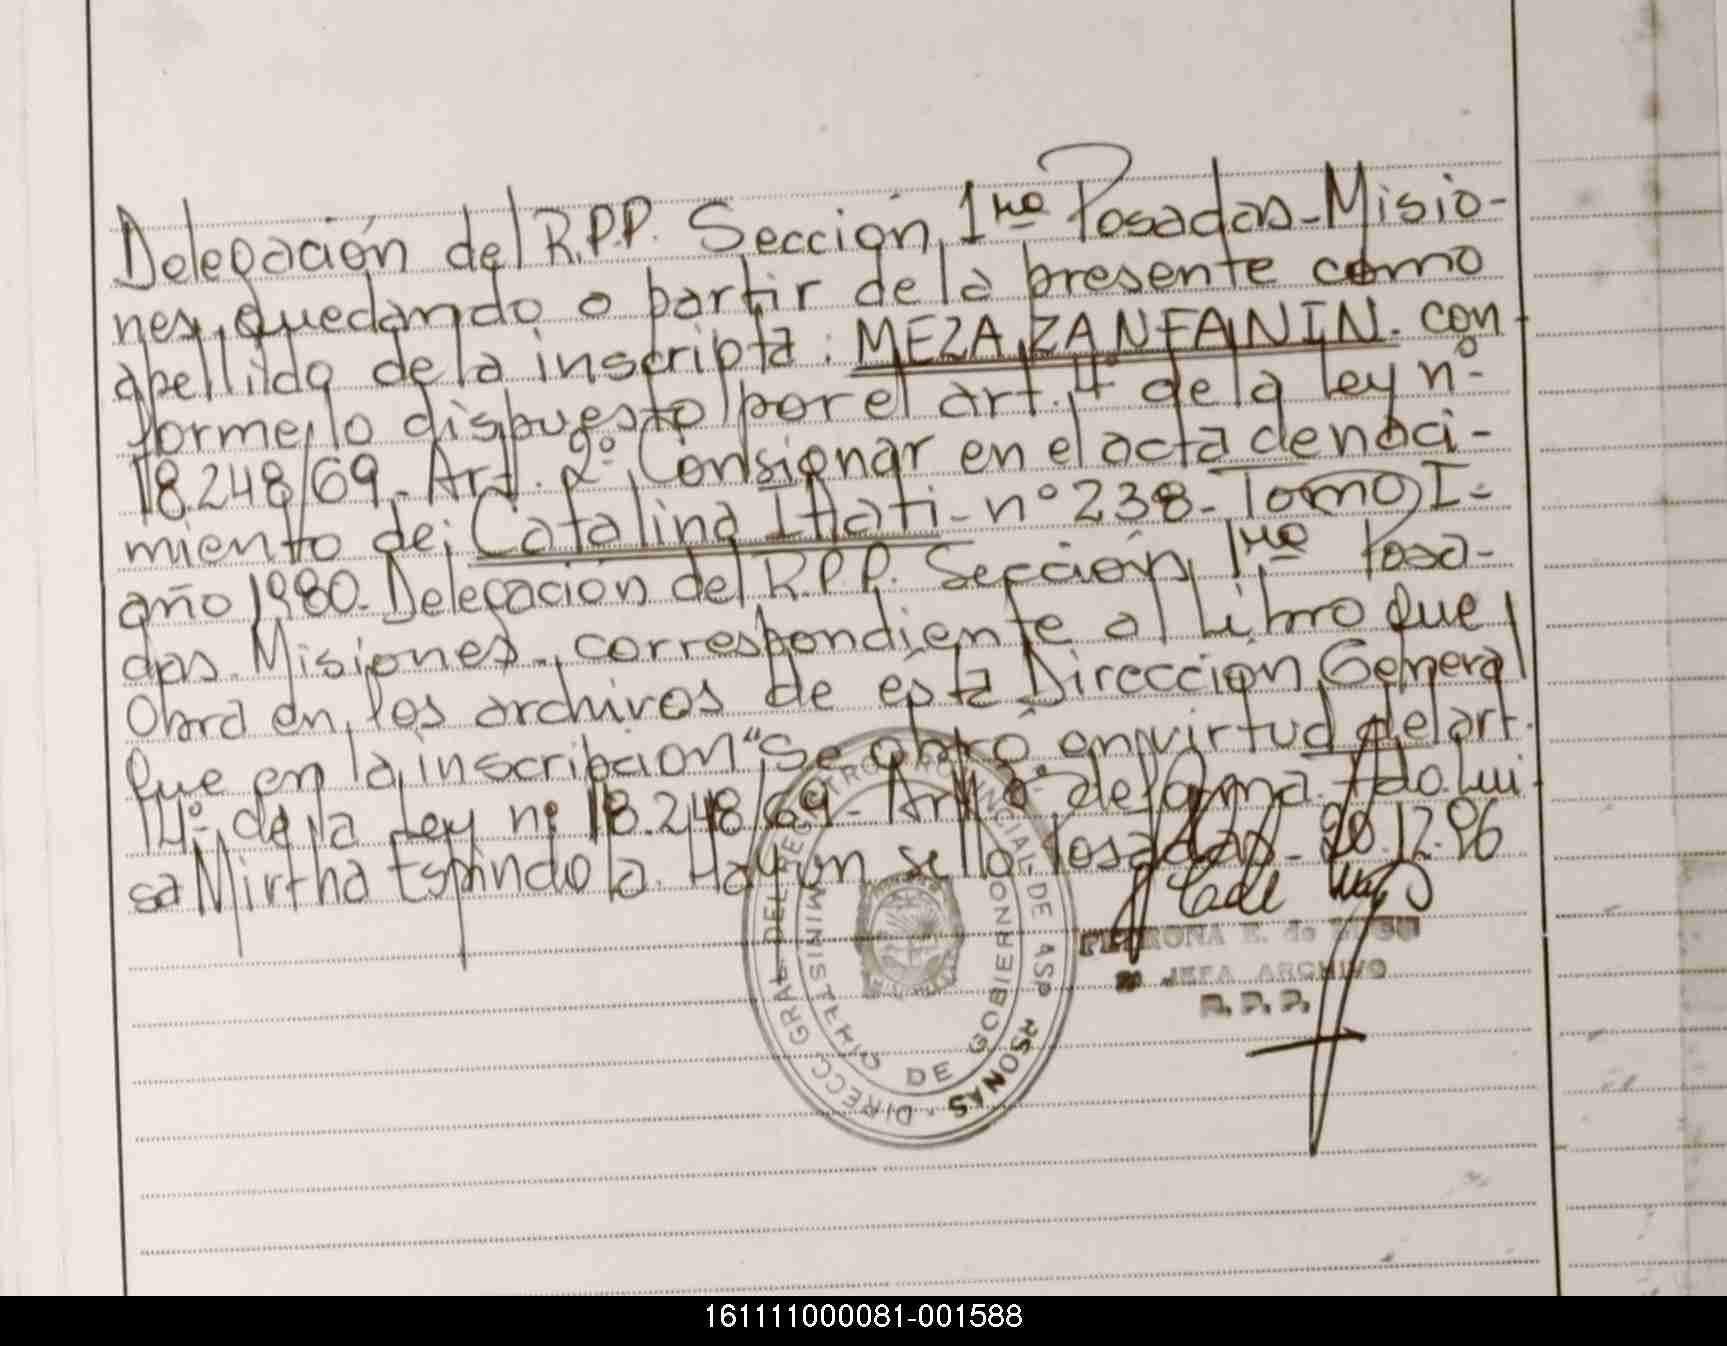 Delegación del R.P.P. Sección 1ra Posadas-Misio-
nes, quedando a partir de la presente como
apellido de la inscripta: MEZA ZANFANIN. con-
forme lo dispuesto por el art. 4° de la ley n°
18.248/69- Art. 2° Consignar en el acta de naci-
miento de: Catalina Itati- n° 238- Tomo I-
año 1980- Delegación del R.P.P. Sección 1ra Posa-
das Misiones, correspondiente al Libro que
Obra en los archivos de ésta Dirección General
que en la inscripcion "Se obró en virtud del art.
14° de la Ley n° 18.248/69- Art de forma. Fdo. Lui
sa Mirtha Espindola. Hay un sello. Posadas- 20.12.96
DIRECC GRAL DEL REGISTRO PROVINCIAL DE
MINISTERIO DE GOBIERNO
JEFA ARCHIVO
R.P.P.
161111000081-001588